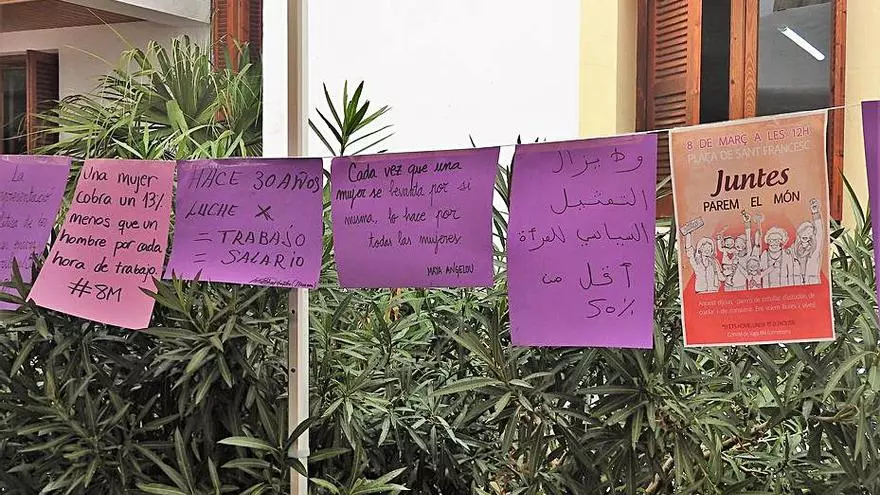 La
representación
política de
Una mujer
cobra un 13%
menos que un
hombre por cada
hora de trabajo.
#8M
HACE 30 AÑOS
LUCHE X
= TRABAJO
= SALARIO
Cada vez que una
mujer se levanta por sí
misma, lo hace por
todas las mujeres
MAYA ANGELOU
ولا يزال
التمثيل
السياسي للمرأة
أقل من
50%
8 DE MARÇ A LES 12H
PLAÇA DE SANT FRANCESC
Juntes
PAREM EL MÓN